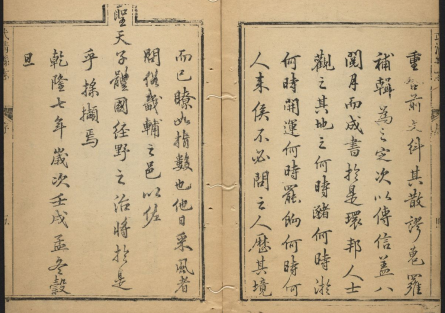 重召前文糾其散謬蒐羅
補輯為之定次以傳信蓋八
閱月而成書於是環邦人士
觀之其地之何時瀦何時淤
何時開運何時罷餉何時何
人來侯不必問之人歷其境
而已瞭如指數也他日采風者
問俗畿輔之邑以佐
聖天子體國經野之治將於是
乎採擷焉
乾隆七年歲次壬戌孟冬穀
旦